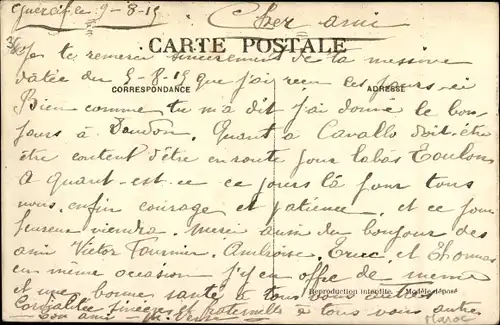 Guercif le 9-8-19
Cher ami
CARTE POSTALE
Je te remercie sincèrement de ta missive
datée du 5-8-19 que j'ai reçu ces jours-ci
CORRESPONDANCE
ADRESSE
Bien comme tu m'a dit j'ai donné le bon-
jours à Quant a Cavallo doit-être
être content d'être en route pour labás Toulon
A quant-est-ce ce jours là pour tous
nous, enfin courage et patience, et ce jour
heureux viendra. Merci aussi du bonjour des
ami Victor Fournier, Ambroise, et Thomas
en même occasion j'y en offre de meme
Reproduction interdite. Modèle déposé
et une bonne santé à tous
Cordialités sincères et fraternelle à tous vous autres
Ton ami
Maroc